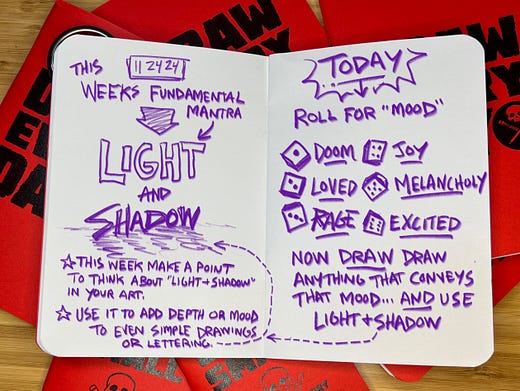 11 24 24
THIS
WEEKS FUNDAMENTAL
MANTRA
LIGHT
AND
SHADOW
☆ THIS WEEK MAKE A POINT
TO THINK ABOUT "LIGHT+SHADOW"
IN YOUR ART.
☆ USE IT TO ADD DEPTH OR MOOD
TO EVEN SIMPLE DRAWINGS
OR LETTERING.
TODAY
ROLL FOR "MOOD"
DOOM JOY
LOVED MELANCHOLY
RAGE EXCITED
NOW DRAW DRAW
ANYTHING THAT CONVEYS
THAT MOOD... AND USE
LIGHT+SHADOW